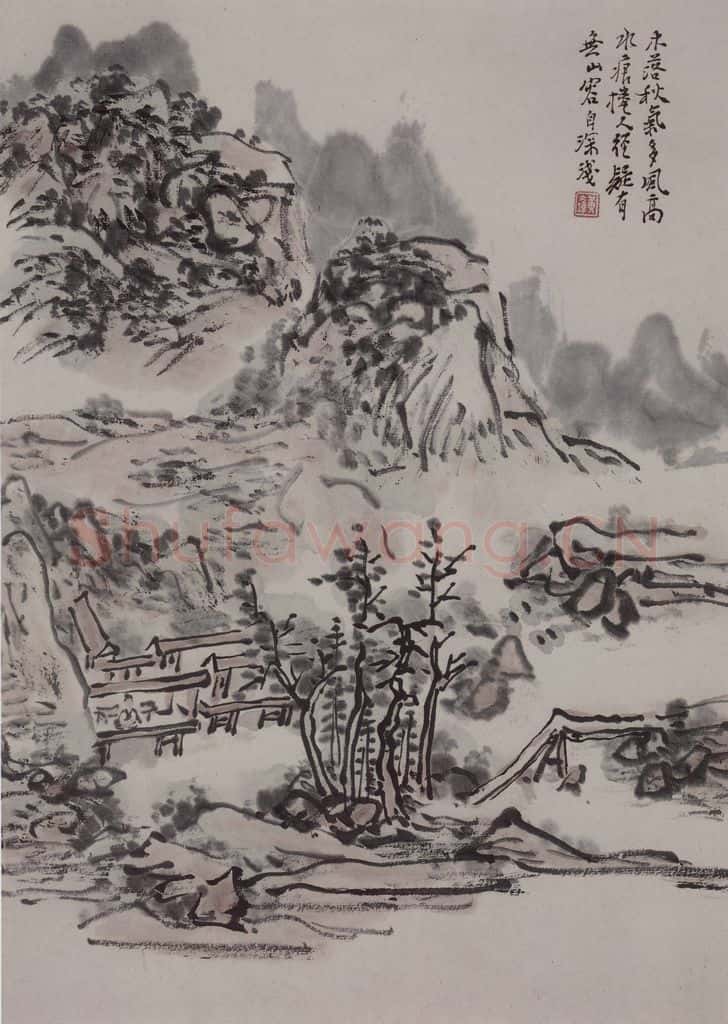 木落秋氣多風高
水痕捲人徑疑有
無山容自深淺
Shufawang.CN